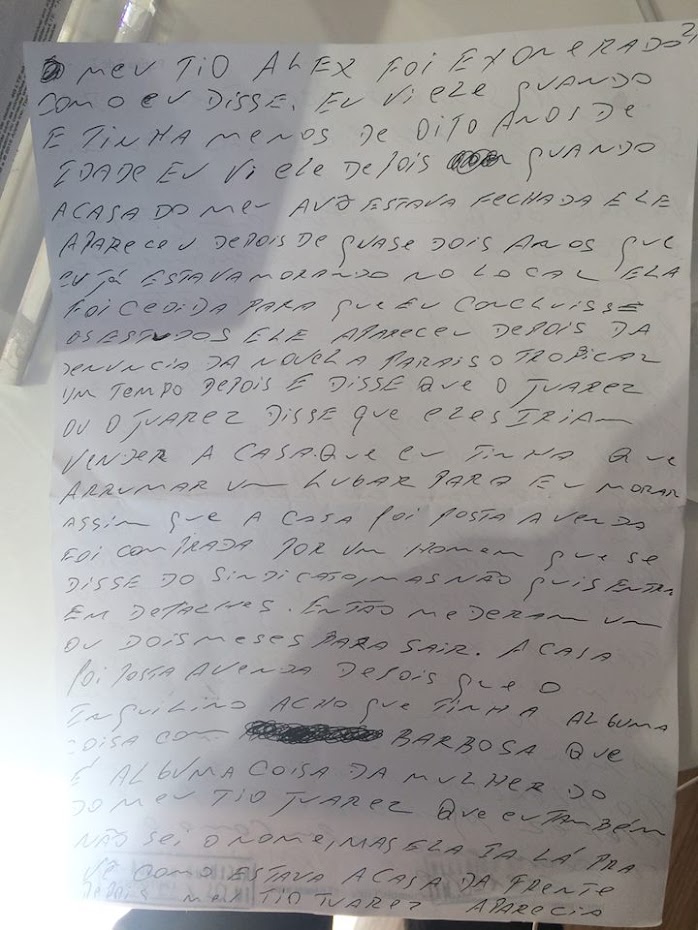 2
MEU TIO ALEX FOI EXONERADO
COMO EU DISSE, EU VI ELE QUANDO
E TINHA MENOS DE OITO ANOS DE
IDADE EU VI ELE DEPOIS QUANDO
A CASA DO MEU AVÔ ESTAVA FECHADA ELE
APARECEU DEPOIS DE QUASE DOIS ANOS QUE
EU JÁ ESTAVA MORANDO NO LOCAL ELA
FOI CEDIDA PARA QUE EU CONCLUISSE
OS ESTUDOS ELE APARECEU DEPOIS DA
DENUNCIA DA NOVELA PARAISO TROPICAL
UM TEMPO DEPOIS E DISSE QUE O JUAREZ
OU O JUAREZ DISSE QUE ELES IRIAM
VENDER A CASA. QUE EU TINHA QUE
ARRUMAR UM LUGAR PARA EU MORAR
ASSIM QUE A CASA FOI POSTA A VENDA
FOI COMPRADA POR UM HOMEM QUE SE
DISSE DO SINDICATO, MAS NÃO QUIS ENTRA
EM DETALHES. ENTÃO ME DERAM UM
OU DOIS MESES PARA SAIR. A CASA
FOI POSTA A VENDA DEPOIS QUE O
INQUILINO ACHO QUE TINHA ALGUMA
COISA COM BARBOSA QUE
É ALGUMA COISA DA MULHER DO
DO MEU TIO JUAREZ QUE EU TAMBÉM
NÃO SEI O NOME, MAS ELA IA LÁ PRA
VÊ COMO ESTAVA A CASA DA FRENTE
DEPOIS MEU TIO JUAREZ APARECIA